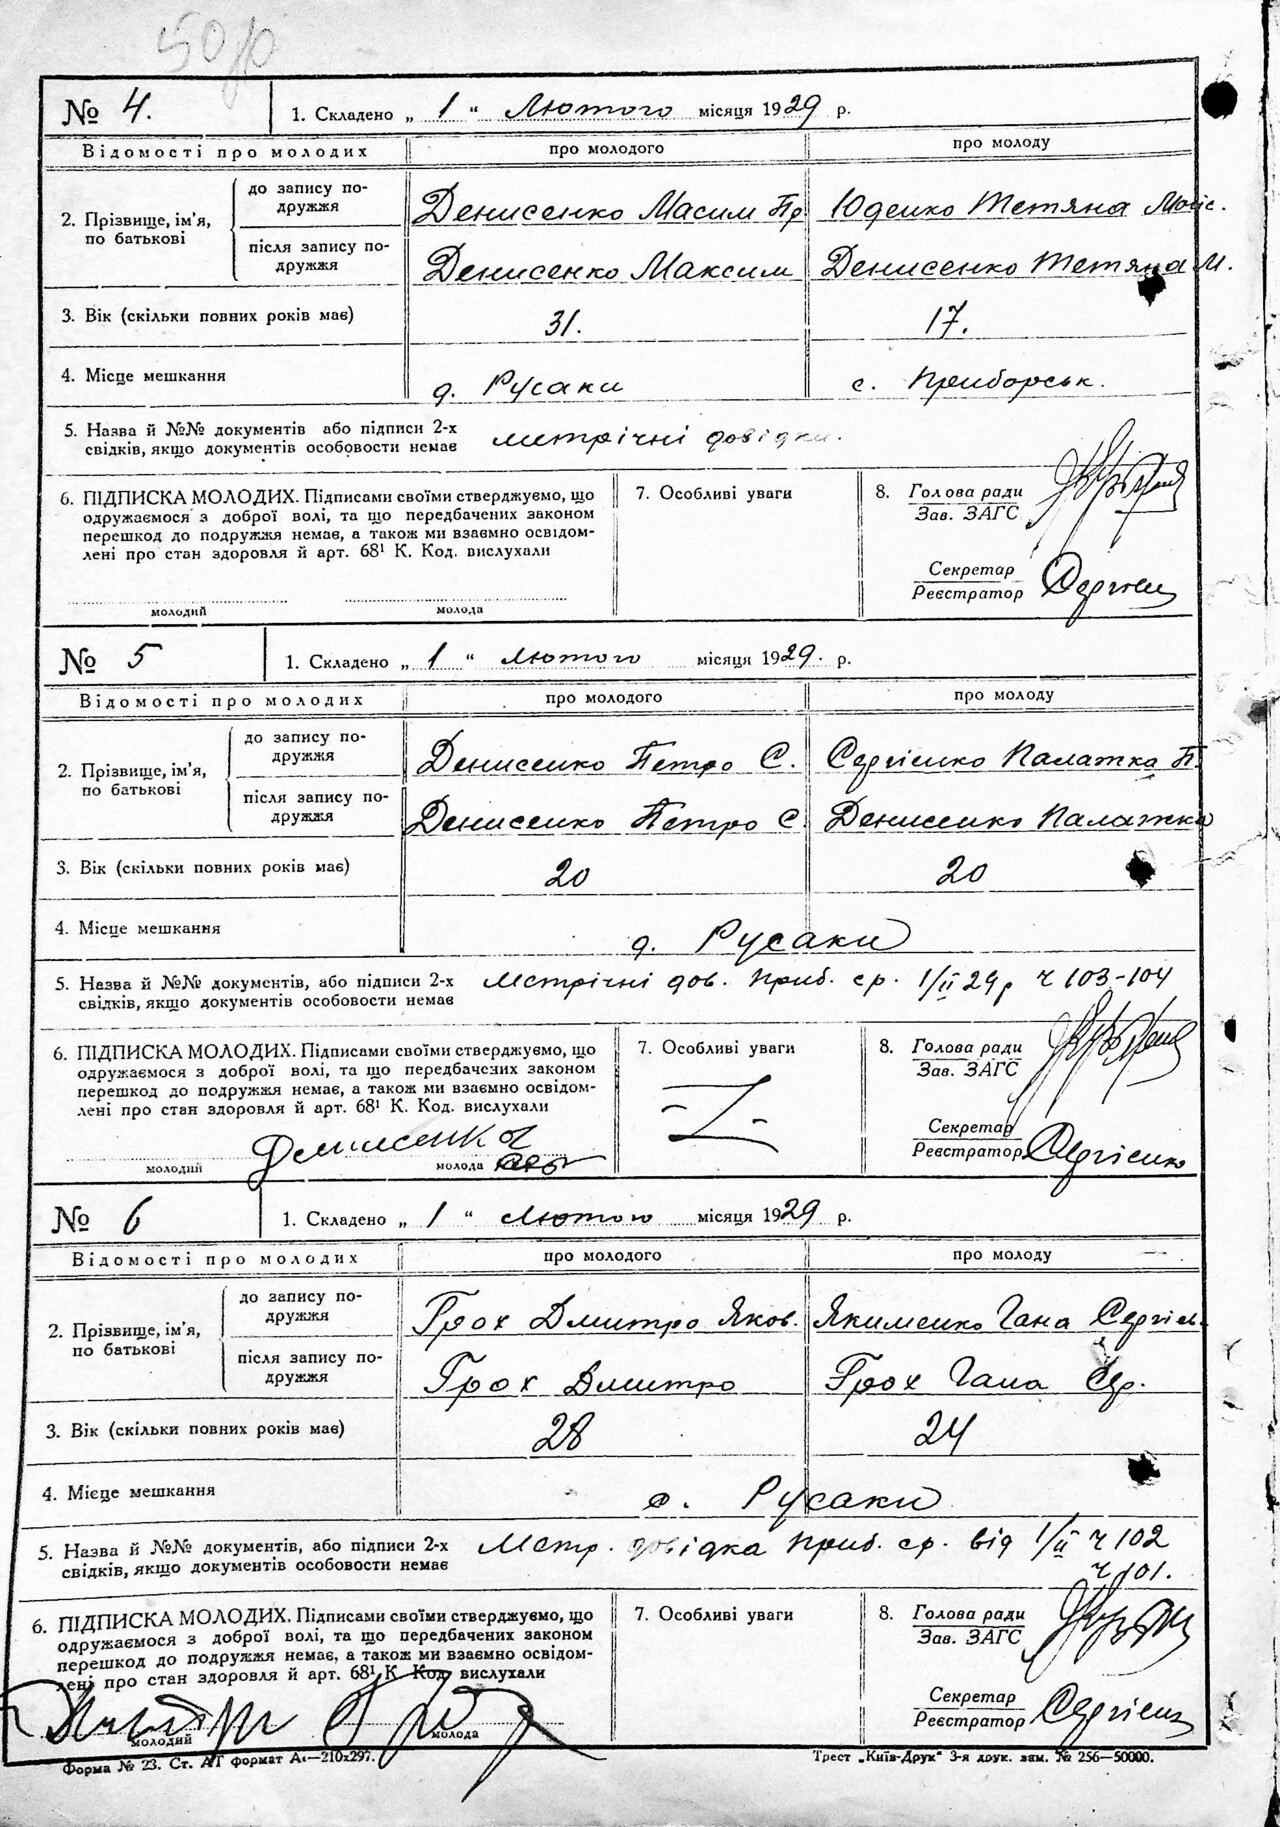 № 4. 1. Складено „ 1 “ Лютого місяця 1929 р.
Відомості про молодих про молодого про молоду
2. Прізвище, ім'я, по батькові
до запису подружжя Денисенко Масим Пр Юденко Тетяна Мойс.
після запису подружжя Денисенко Максим Денисенко Тетяна М.
3. Вік (скільки повних років має) 31. 17.
4. Місце мешкання д. Русаки с. Приборськ.
5. Назва й №№ документів або підписи 2-х метрічні довідки.
свідків, якщо документів особовости немає
6. ПІДПИСКА МОЛОДИХ. Підписами своїми стверджуємо, що
одружаємося з доброї волі, та що передбачених законом
перешкод до подружжя немає, а також ми взаємно освідом-
лені про стан здоровля й арт. 68¹ К. Код. вислухали
молодий молода
7. Особливі уваги
8. Голова ради
Зав. ЗАГС
Секретар
Реєстратор
№ 5 1. Складено „ 1 “ лютого місяця 1929. р.
Відомості про молодих про молодого про молоду
2. Прізвище, ім'я, по батькові
до запису подружжя Денисенко Петро С. Сергієнко Палажка П.
після запису подружжя Денисенко Петро С. Денисенко Палажка
3. Вік (скільки повних років має) 20 20
4. Місце мешкання д. Русаки
5. Назва й №№ документів, або підписи 2-х Метрічні дов. Приб. ср. 1/ІІ 29р ч 103-104
свідків, якщо документів особовости немає
6. ПІДПИСКА МОЛОДИХ. Підписами своїми стверджуємо, що
одружаємося з доброї волі, та що передбачених законом
перешкод до подружжя немає, а також ми взаємно освідом-
лені про стан здоровля й арт. 68¹ К. Код. вислухали
Денисенко
молодий молода
7. Особливі уваги
8. Голова ради
Зав. ЗАГС
Секретар
Реєстратор Сергієнко
№ 6 1. Складено „ 1 “ лютого місяця 1929 р.
Відомості про молодих про молодого про молоду
2. Прізвище, ім'я, по батькові
до запису подружжя Грох Дмитро Яков. Якименко Гана Сергієв.
після запису подружжя Грох Дмитро Грох Гана Сер.
3. Вік (скільки повних років має) 28 24
4. Місце мешкання с. Русаки
5. Назва й №№ документів, або підписи 2-х Метр. довідка Приб. ср. від 1/ІІ ч 102
свідків, якщо документів особовости немає ч 101.
6. ПІДПИСКА МОЛОДИХ. Підписами своїми стверджуємо, що
одружаємося з доброї волі, та що передбачених законом
перешкод до подружжя немає, а також ми взаємно освідом-
лені про стан здоровля й арт. 68¹ К. Код. вислухали
молодий молода
7. Особливі уваги
8. Голова ради
Зав. ЗАГС
Секретар
Реєстратор
Форма № 23. Ст. АТ формат А4—210x297. Трест „Київ-Друк“ 3-я друк. зам. № 256—50000.